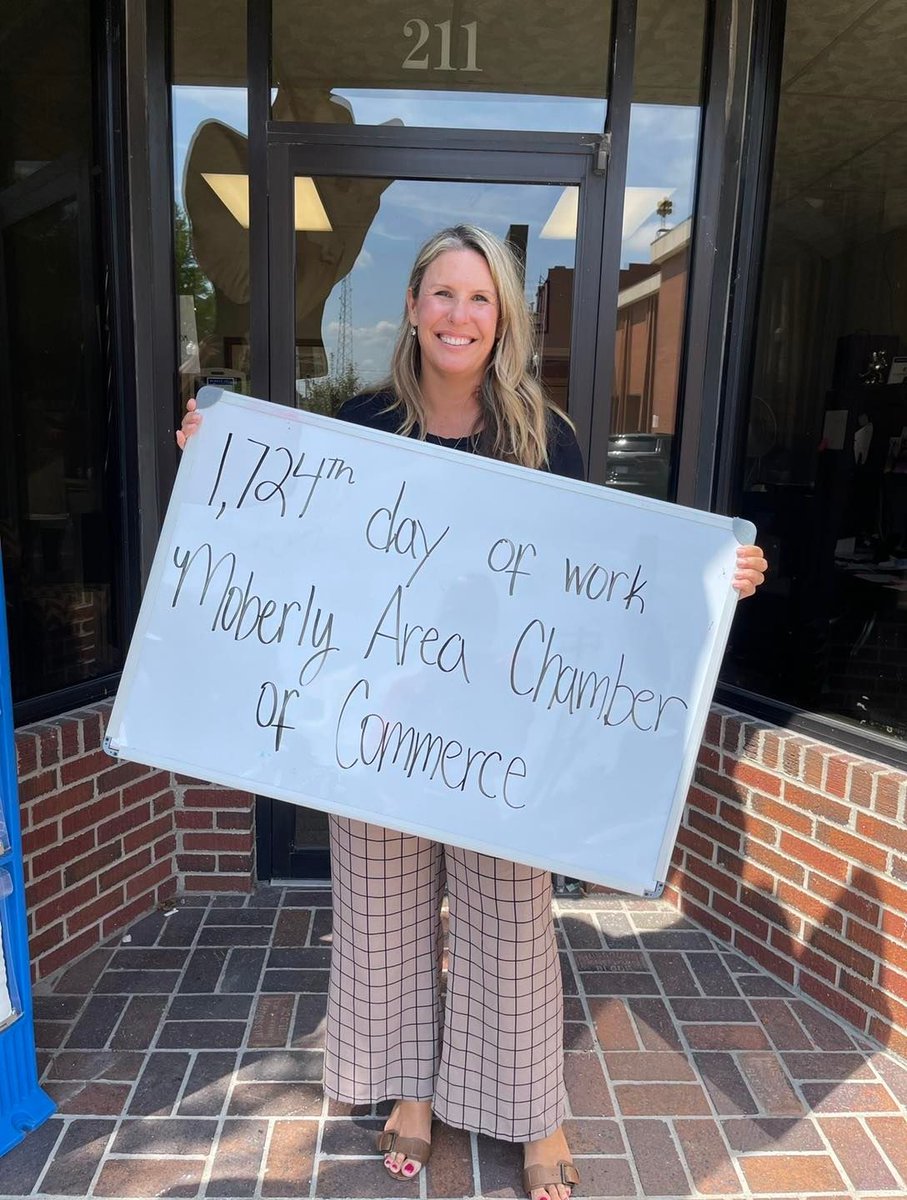 211
1,724th day of work
Moberly Area Chamber
of Commerce